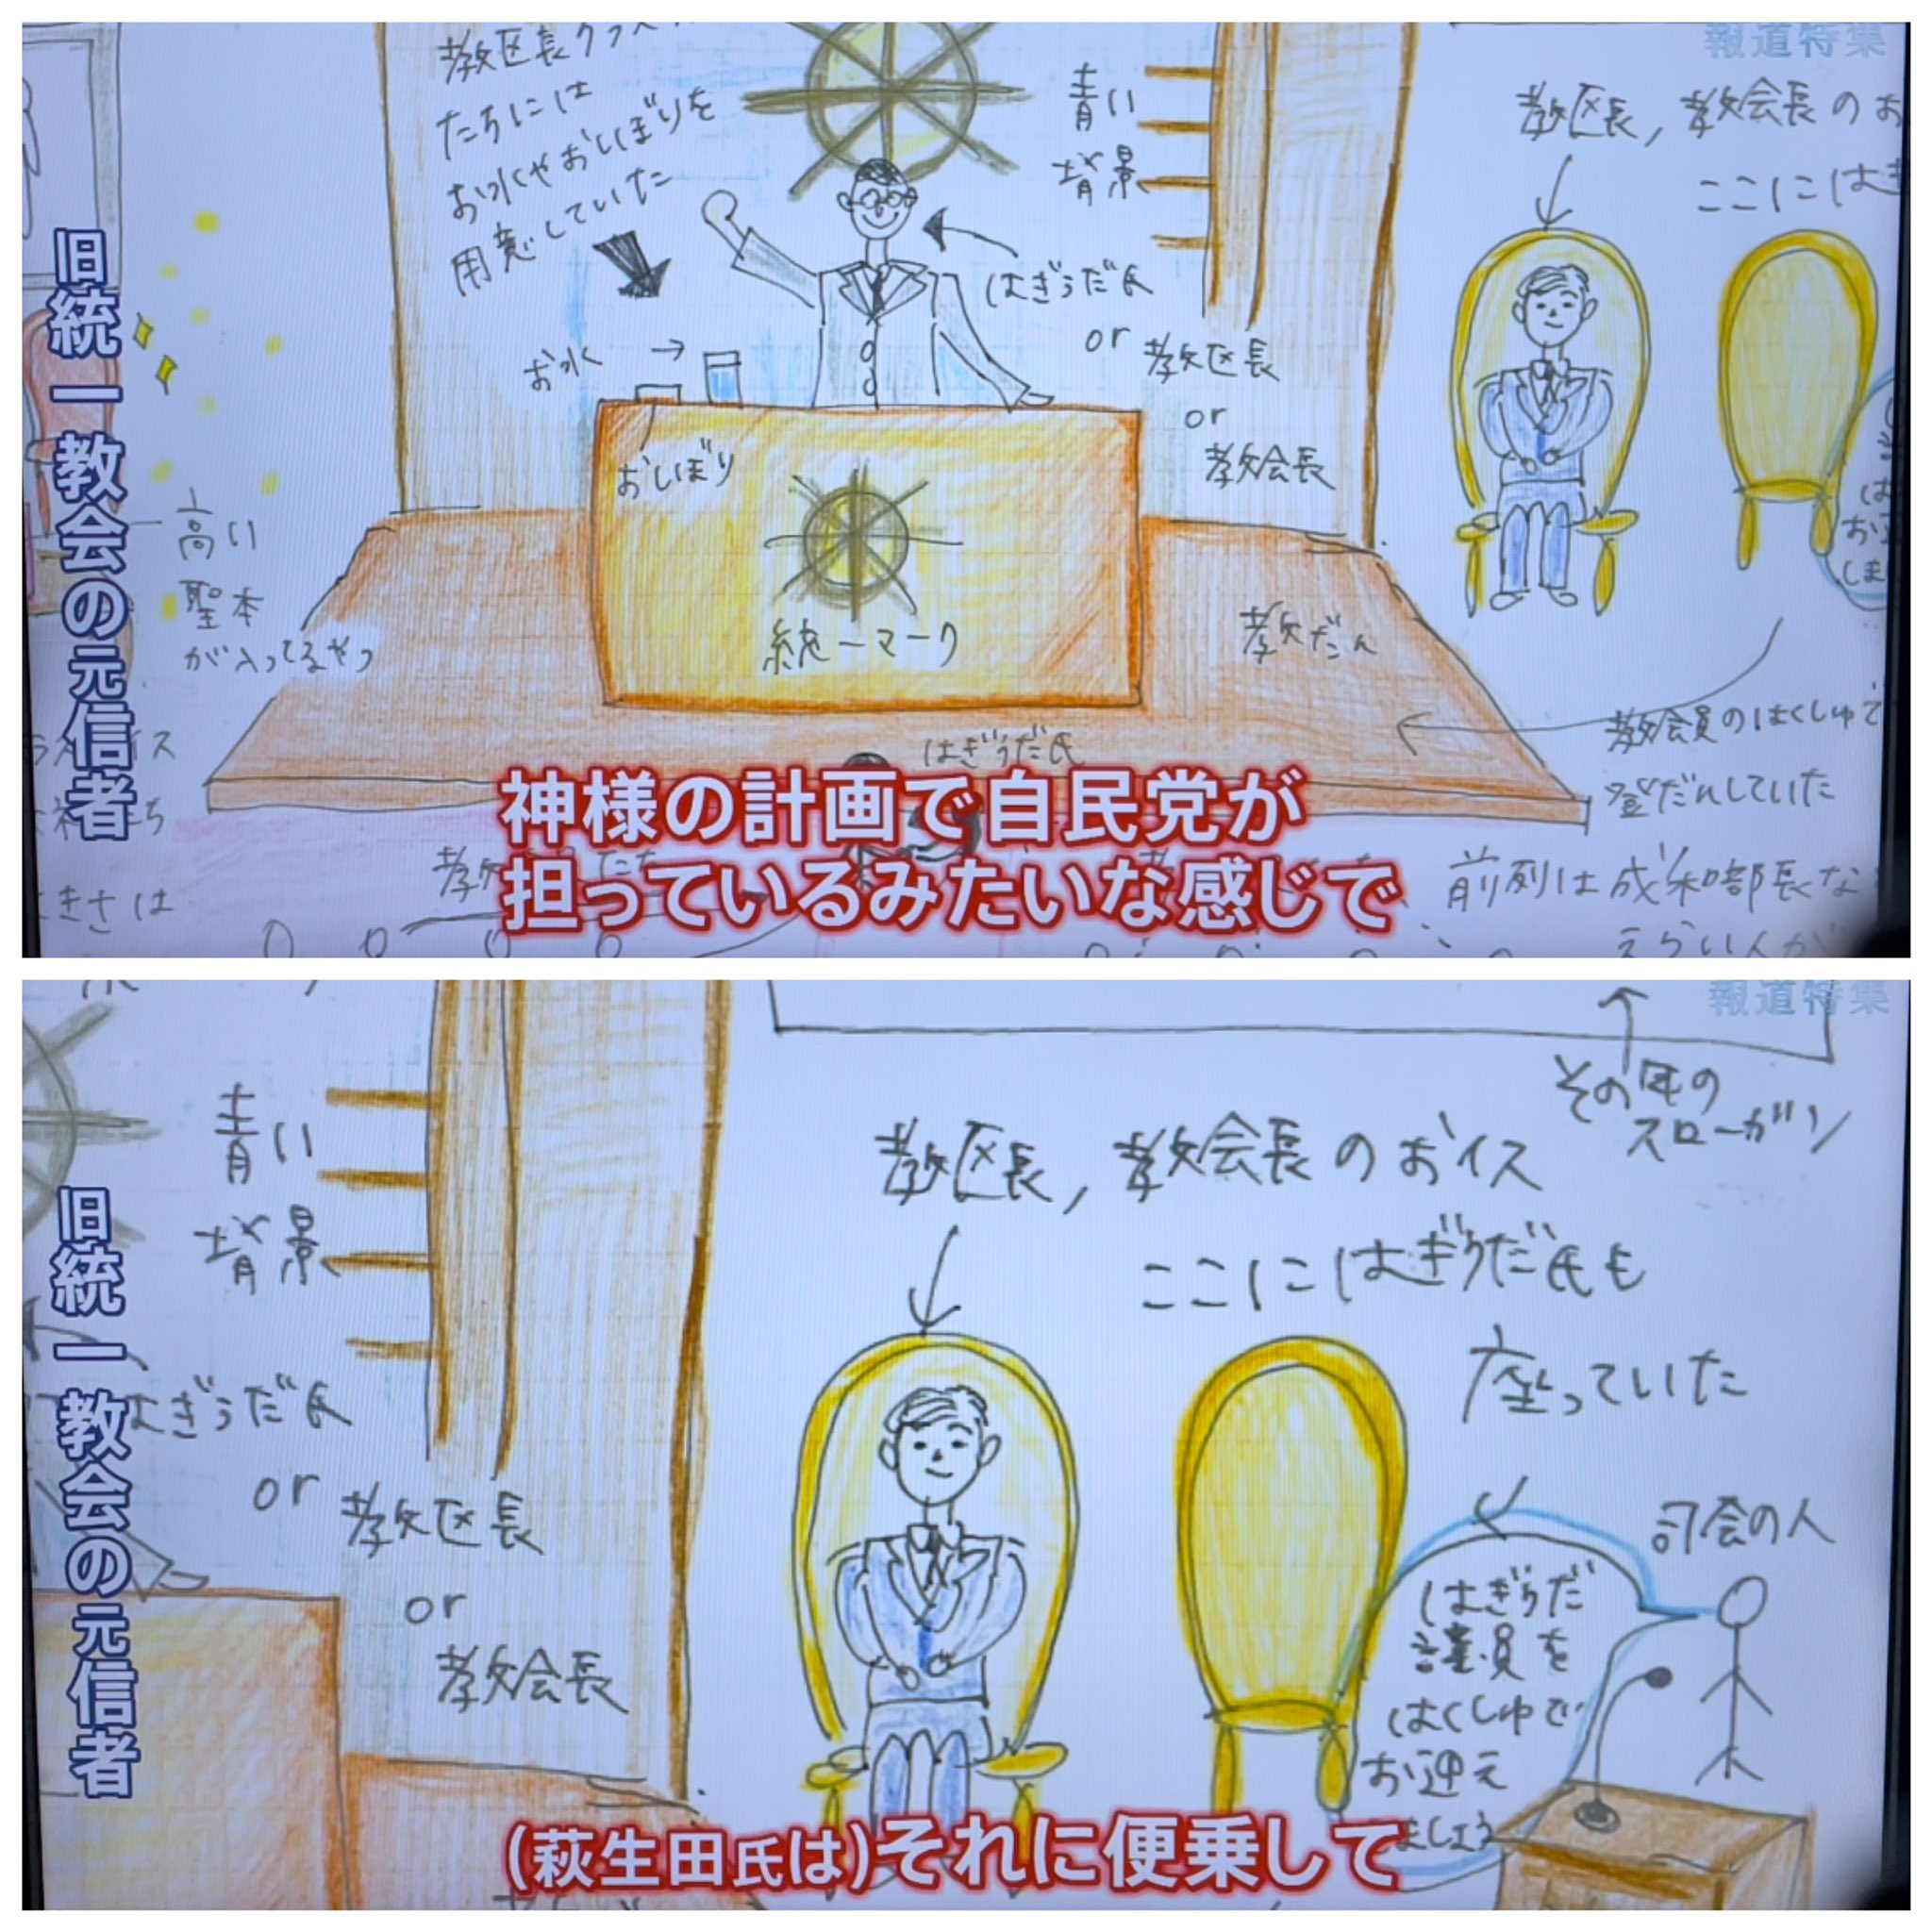 報道特集
教区長クラス
たちには
お水やおしぼりを
用意していた
青い
背景
教区長,教会長のお
ここには
はぎうだ氏
or
教区長
or
教会長
お水
おしぼり
統一マーク
教だん
高い
聖本
が入ってるやつ
教会員のはくしゅで
登だんしていた
はぎうだ氏
前列は成和部長な
えらい人が
きさは
旧統一教会の元信者
神様の計画で自民党が
担っているみたいな感じで
報道特集
その年の
スローガン
青い
背景
教区長,教会長のおイス
ここにはぎうだ氏も
座っていた
はぎうだ氏
or
教区長
or
教会長
司会の人
はぎうだ
議員を
はくしゅで
お迎え
ましょう
旧統一教会の元信者
(萩生田氏は)それに便乗して